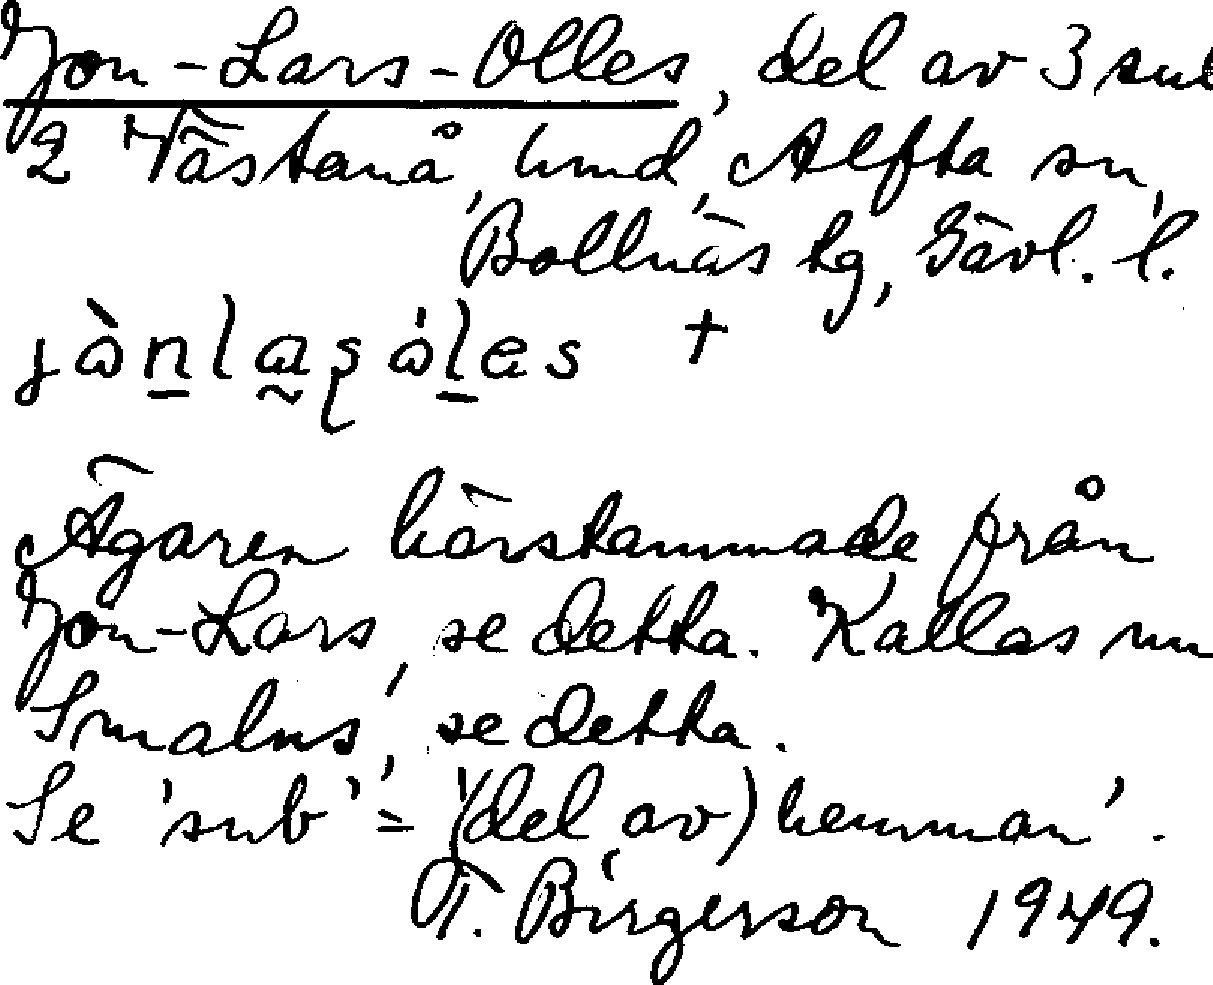 Jon-Lars-Olles, del av 3 sub
2 Västanå, hmd, Alfta sn,
Bollnäs tg, Gävl. l.
jònlaşóles +
Ägaren härstammade från
Jon-Lars, se detta. Kallas nu
Smalns, se detta.
Se 'sub' = '(del av) hemman'.
T. Birgerson 1949.